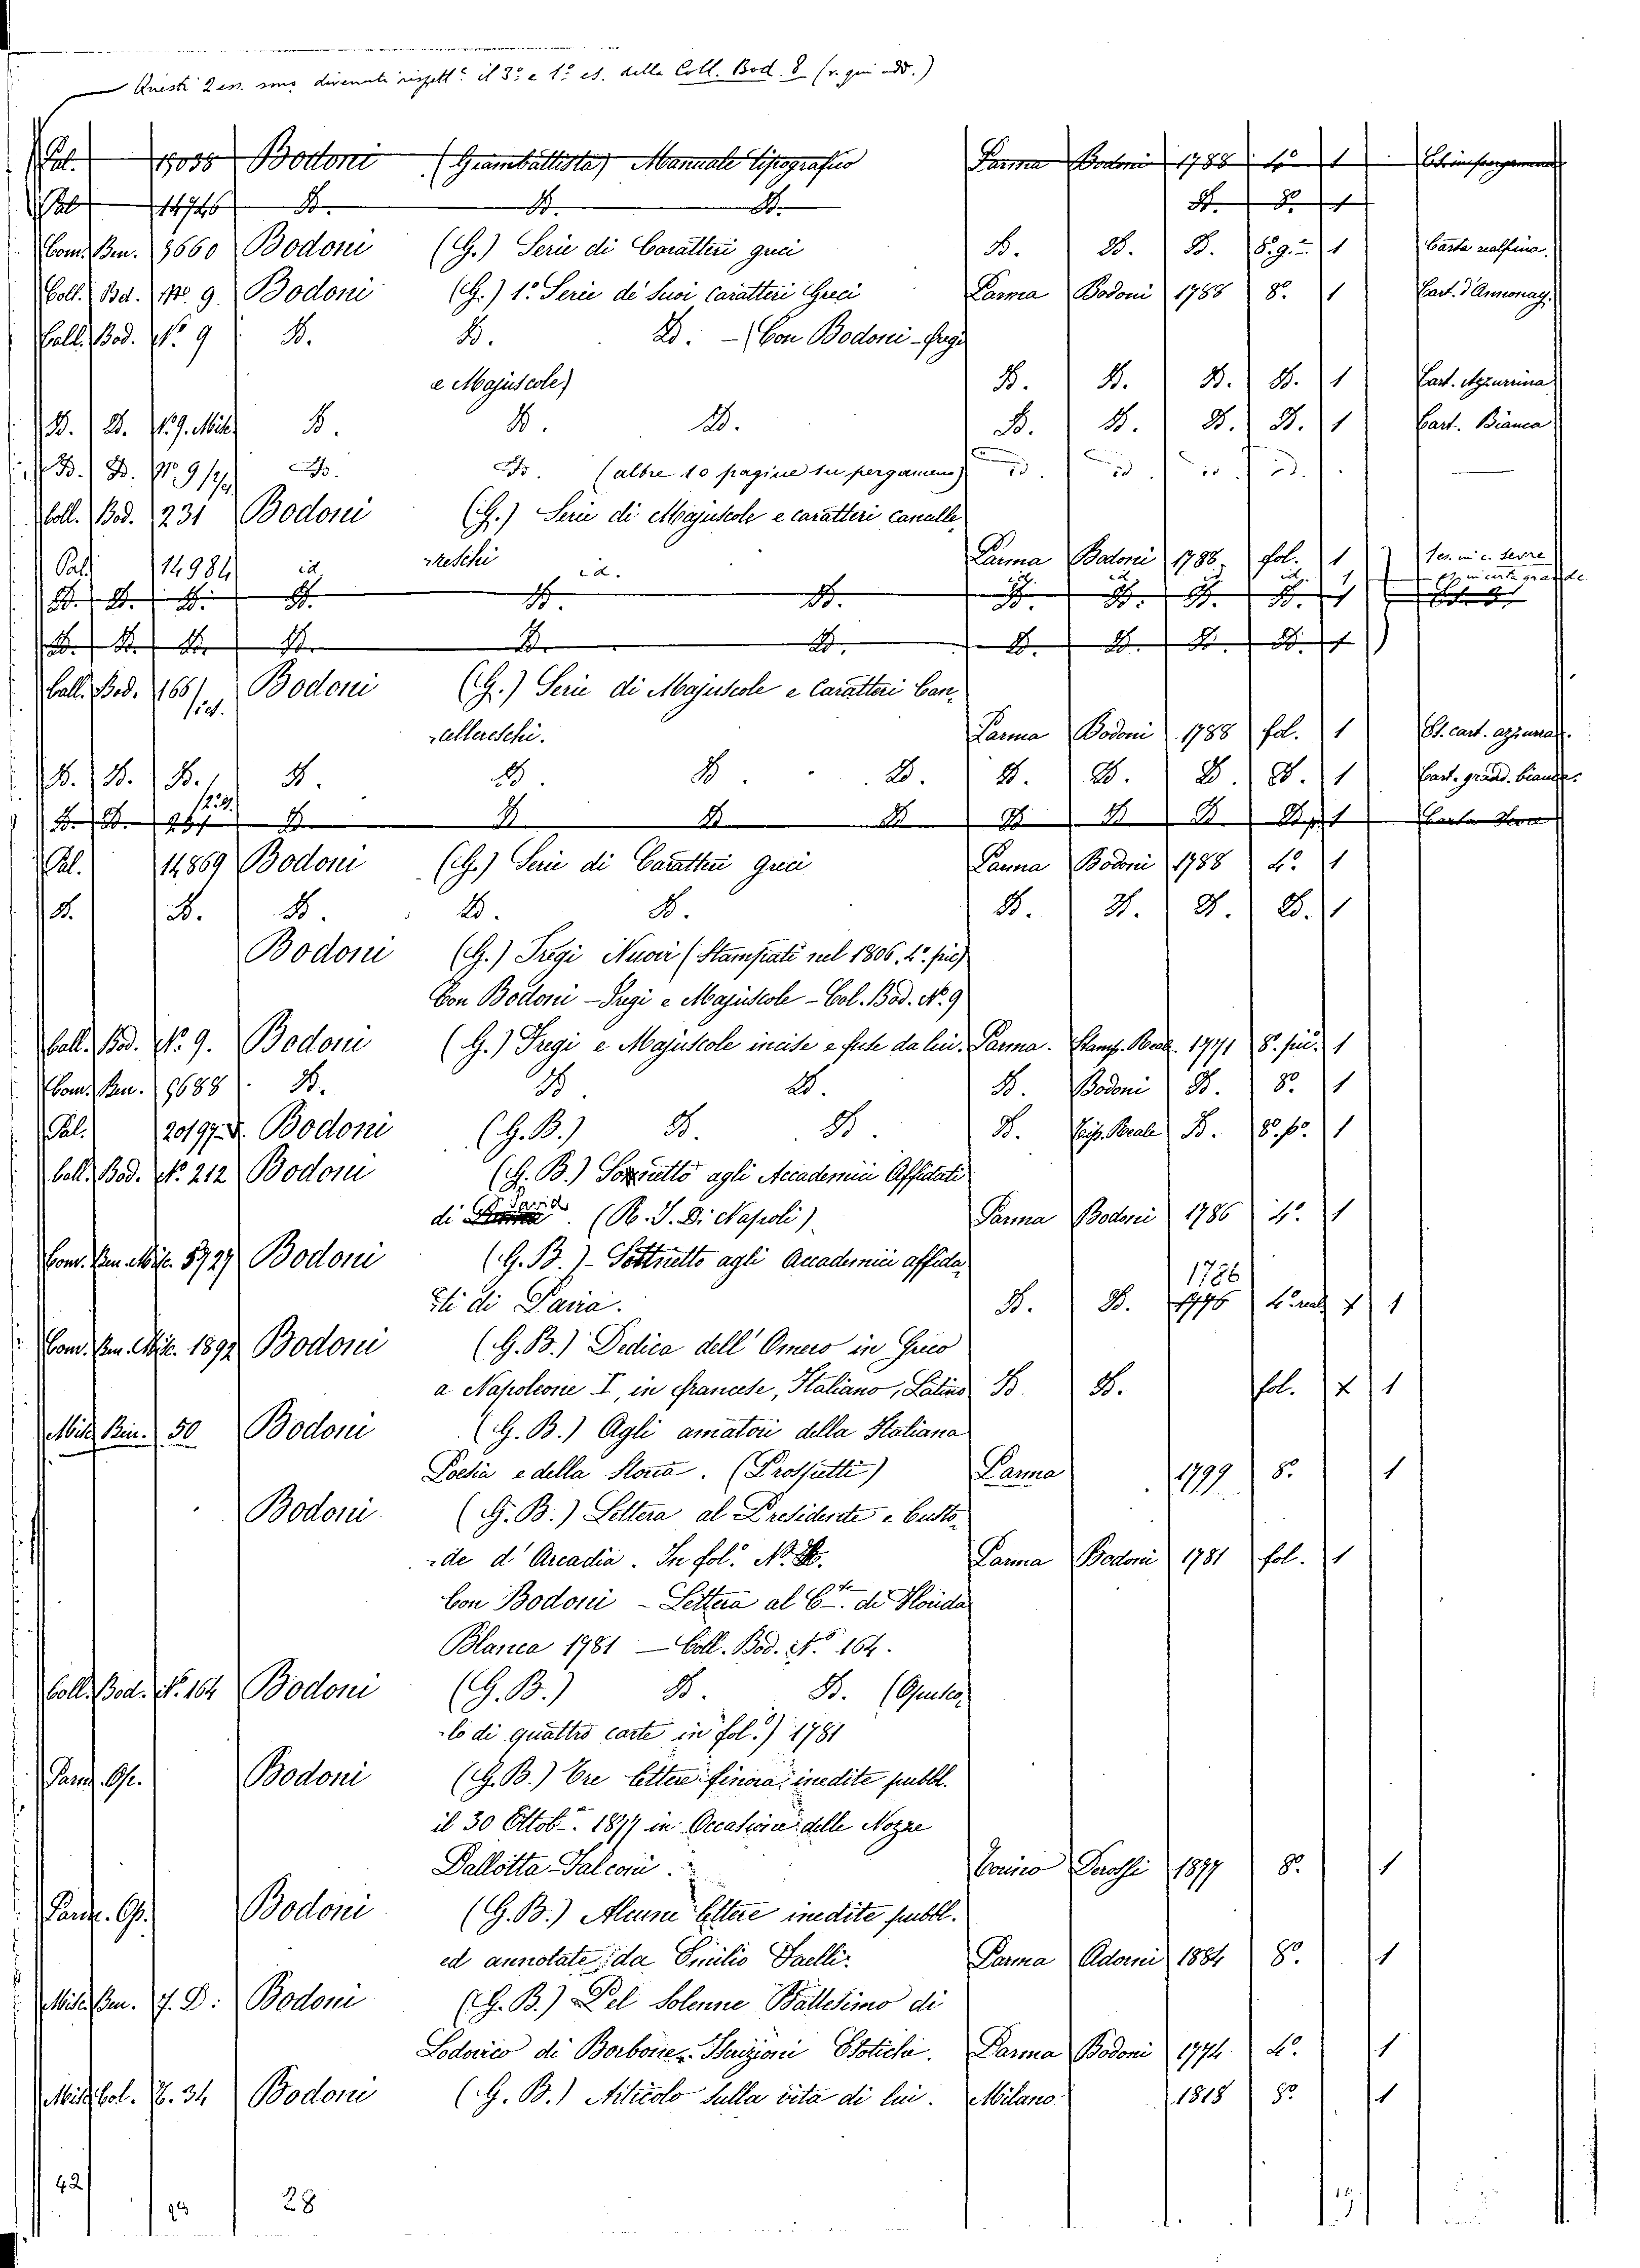 Questi 2 es. sono divenuti rispett.e il 3.o e 1.o es. della Coll. Bod. 8 (v. qui add.)
Pal. 15038 Bodoni (Giambattista) Manuale tipografico Parma Bodoni 1788 4o 1
Pal 14746 D. D. D. D. 8o 1
Com. Ben. 3660 Bodoni (G.) Serie di Caratteri greci D. D. D. 8.g. 1 Carta realfina.
Coll. Bd. No. 9. Bodoni (G.) 1a Serie de suoi caratteri Greci Parma Bodoni 1788 8o 1 Cart. d'Annonay.
Coll. Bod. No 9 D. D. D. - (Con Bodoni - Fregi
e Majuscole) D. D. D. D. 1 Cart. Azzurrina
D. D. No. 9. D. D. D. D. D. D. D. 1 Cart. Bianca
D. D. No 9 D. D. (altre 10 pagine su pergamena) id. id. id. id.
Coll. Bod. 231 Bodoni (G.) Serie di Majuscole e caratteri cancelle
reschi Parma Bodoni 1788. fol. 1
Pal. 14984 id. id. id. id. id. id. 1
D. D. D. D. D. D. D. D. D. D. 1
D. D. D. D. D. D. D. D. D. D. 1
Coll. Bod. 165 Bodoni (G.) Serie di Majuscole e Caratteri Can-
cellereschi. Parma Bodoni 1788 fol. 1 Es. cart. azzurra.
D. D. D. D. D. D. D. D. D. D. D. 1 Cart. grand. bianca.
D. D. D. D. D. D. D. D. D. D. 1 Carta
Pal. 14869 Bodoni (G.) Serie di Caratteri Greci Parma Bodoni 1788 4o 1
D. D. D. D. D. D. D. D. D. 1
Bodoni (G.) Fregi Nuovi (Stampati nel 1806. 4o pic.)
Con Bodoni - Fregi e Majuscole - Col. Bod. No. 9
Coll. Bod. No. 9. Bodoni (G.) Fregi e Majuscole incise e fuse da lui. Parma. Stamp. Reale. 1771 8o pic. 1
Com. Ben. 9688 D. D. D. D. Bodoni D. 8o 1
Pal. 20197. Bodoni (G. B.) D. D. D. Reale D. 8o p. 1
Coll. Bod. No. 212 Bodoni (G. B.) Sonetto agli Accademici Affidati
di Pavia (R. I. Di Napoli) Parma Bodoni 1786 4o 1
Com. Ben. Misc. 5727 Bodoni (G. B.) - Sonetto agli Accademici affida-
ti di Pavia. D. D. 1786 4o 1
Com. Ben. Misc. 1892 Bodoni (G. B.) Dedica dell' Omero in Greco
a Napoleone I, in francese, Italiano, Latino D. D. fol. 1
Misc. 50 Bodoni (G. B.) Agli amatori della Italiana
Poesia e della Storia. (Prospetti) Parma 1799 8o 1
Bodoni (G. B.) Lettera al Presidente e Custo-
de d' Arcadia. In fol. Parma Bodoni 1781 fol. 1
Con Bodoni - Lettera al Cte. di Florida
Blanca 1781 - Coll. Bod. No 164.
Coll. Bod. No. 164 Bodoni (G. B.) D. D. (Opusco-
lo di quattro carte in fol.) 1781
Parm. Op. Bodoni (G. B.) Tre lettere finora inedite pubbl.
il 30 Ottob. 1897 in Occasione delle Nozze
Pallotta-Falconi. Torino 1897 8o 1
Parm. Op. Bodoni (G. B.) Alcune lettere inedite pubbl.
ed annotate da Emilio Faelli. Parma Adorni 1884 8o 1
Misc. Ben. 7. D: Bodoni (G. B.) Pel solenne Battesimo di
Lodovico di Borbone. Iscrizioni Esotiche. Parma Bodoni 1774 4o 1
Misc. Col. 34 Bodoni (G. B.) Articolo sulla vita di lui. Milano 1818 8o 1
42 28